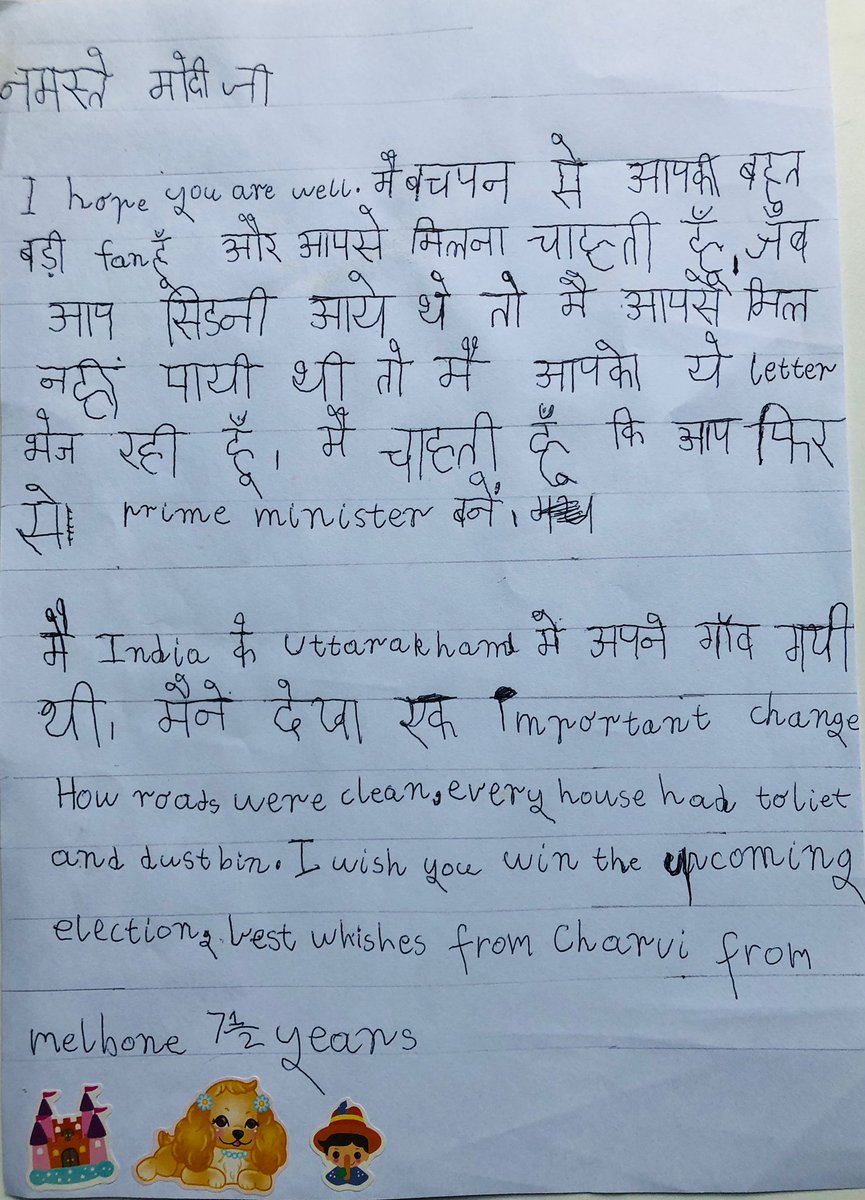 नमस्ते मोदी जी
I hope you are well. मैं बचपन से आपकी बहुत
बड़ी fan हूँ और आपसे मिलना चाहती हूँ, जब
आप सिडनी आये थे तो मै आपसे मिल
नहीं पायी थी तो मैं आपको ये letter
भेज रही हूँ। मै चाहती हूँ कि आप फिर
से prime minister बनें।
मैं India के Uttarakhand मे अपने गाँव गयी
थी। मैंने देखा एक Important change
How roads were clean, every house had toliet
and dustbin. I wish you win the upcoming
election, best whishes from Charvi from
melbone 7 1/2 years